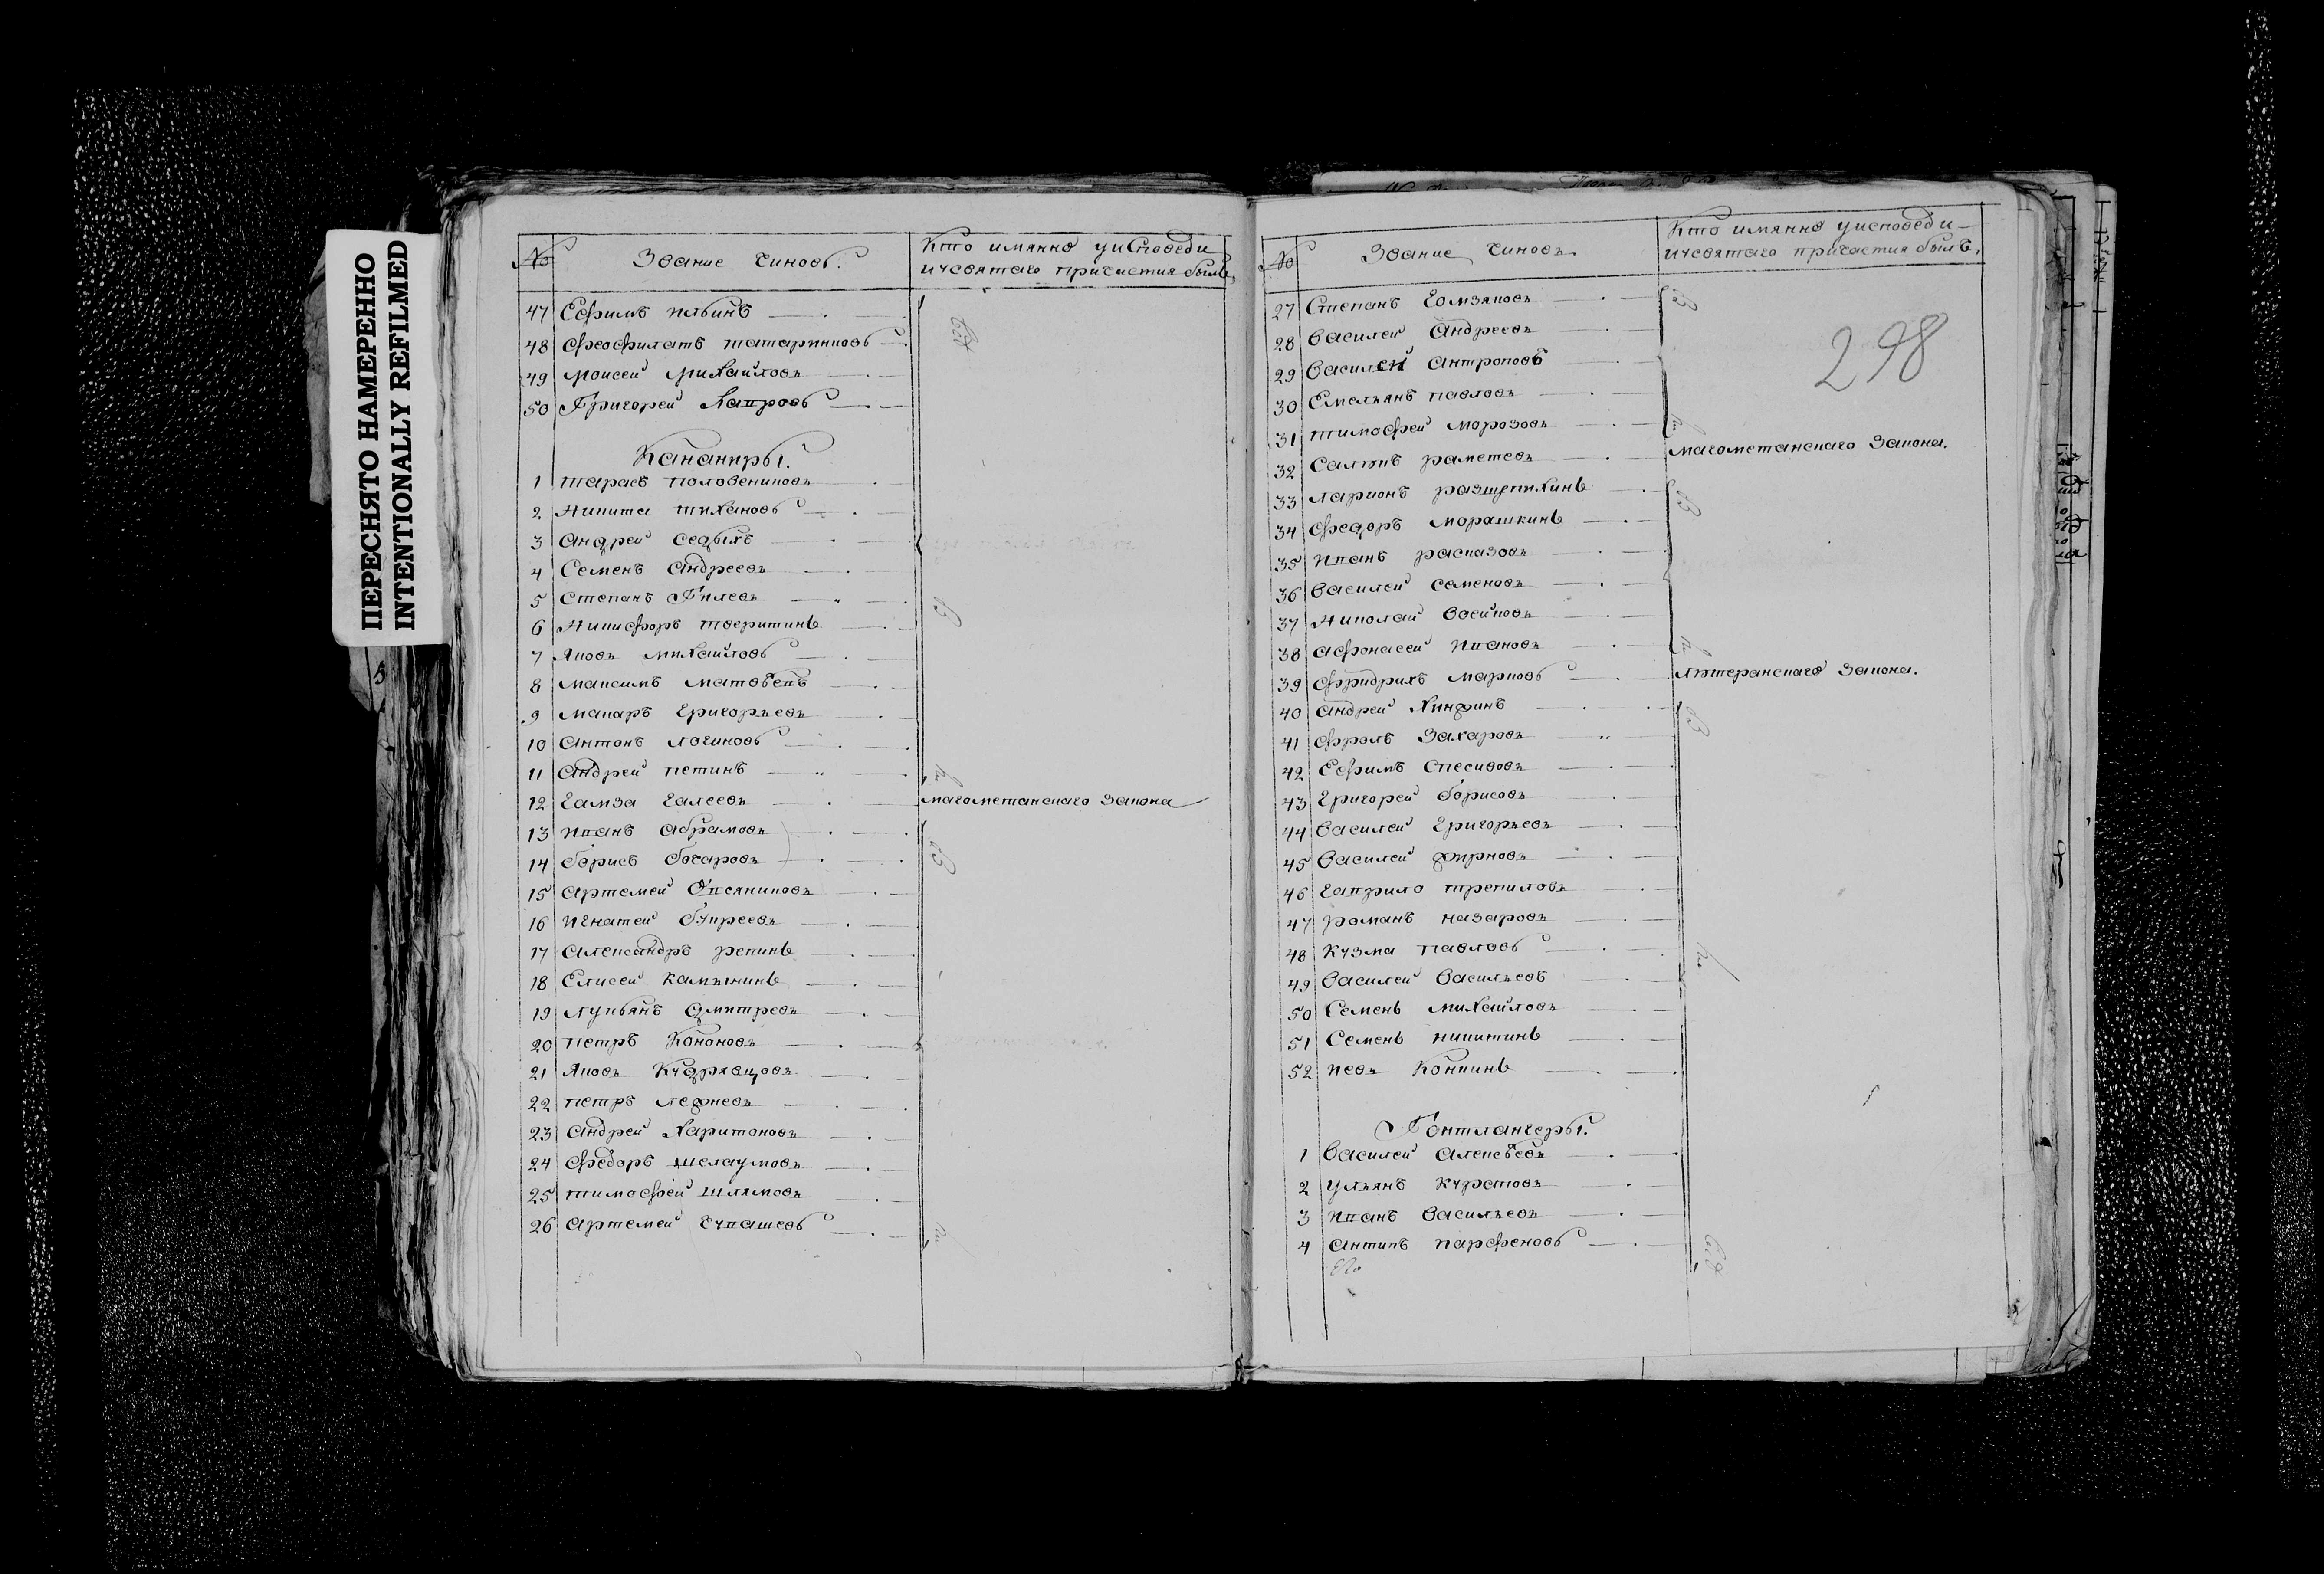 ПЕРЕСНЯТО НАМЕРЕННО
INTENTIONALLY REFILMED
№ Звание Чиновъ. Кто имянно уисповеди
ичсвятаго причастия былъ.
47 Ефимъ ильинъ
48 Феофилатъ татариниовъ
49 Моисей Михайловъ
50 Григорей Лавровъ
Кананиры.
1 тарасъ половениковъ
2 Никита тихановъ
3 Андрей Седыхъ
4 Семенъ Андреевъ
5 Степанъ Гилевъ
6 Никифоръ тверитинъ
7 Яковъ Михайловъ
8 Максимъ Матвеевъ
9 Макаръ Григорьевъ
10 Антонъ логиновъ
11 Андрей петинъ
12 Гамза Галеевъ магометанскаго закона
13 иванъ абрамовъ
14 борисъ бочаровъ
15 Артемей Овсяниковъ
16 игнатей букреевъ
17 Александръ репинъ
18 Елисей Камынинъ
19 лукьянъ дмитревъ
20 петръ Кононовъ
21 Яковъ Кудрявцовъ
22 петръ ледневъ
23 Андрей Харитоновъ
24 Федоръ шелаумовъ
25 тимофей шлямовъ
26 Артемей Чупашевъ
№ Звание Чиновъ. Кто имянно уисповеди
ичсвятаго причастия былъ.
298
27 Степанъ Гомзяковъ
28 Василей Андреевъ
29 Василей Антроповъ
30 Емельянъ павловъ
31 тимофей Морозовъ
32 Салтик раметевъ магометанскаго закона.
33 ларионъ разщепихинъ
34 Федоръ Морашкинъ
35 иванъ расказовъ
36 Василей семеновъ
37 Николай Воейковъ
38 Афонасей ивановъ
39 Фридрихъ Марковъ лютеранскаго закона.
40 Андрей Хиндинъ
41 Фролъ Захаровъ
42 Ефимъ Спесивовъ
43 Григорей борисовъ
44 Василей Григорьевъ
45 Василей Фирновъ
46 Гаврило трепиловъ
47 романъ назаровъ
48 Кузма павловъ
49 Василей Васильевъ
50 Семенъ Михайловъ
51 Семенъ никитинъ
52 иевъ Конкинъ
Гантлангеры.
1 Василей Алексеевъ
2 ульянъ Курсковъ
3 иванъ Васильевъ
4 Антипъ парфеновъ